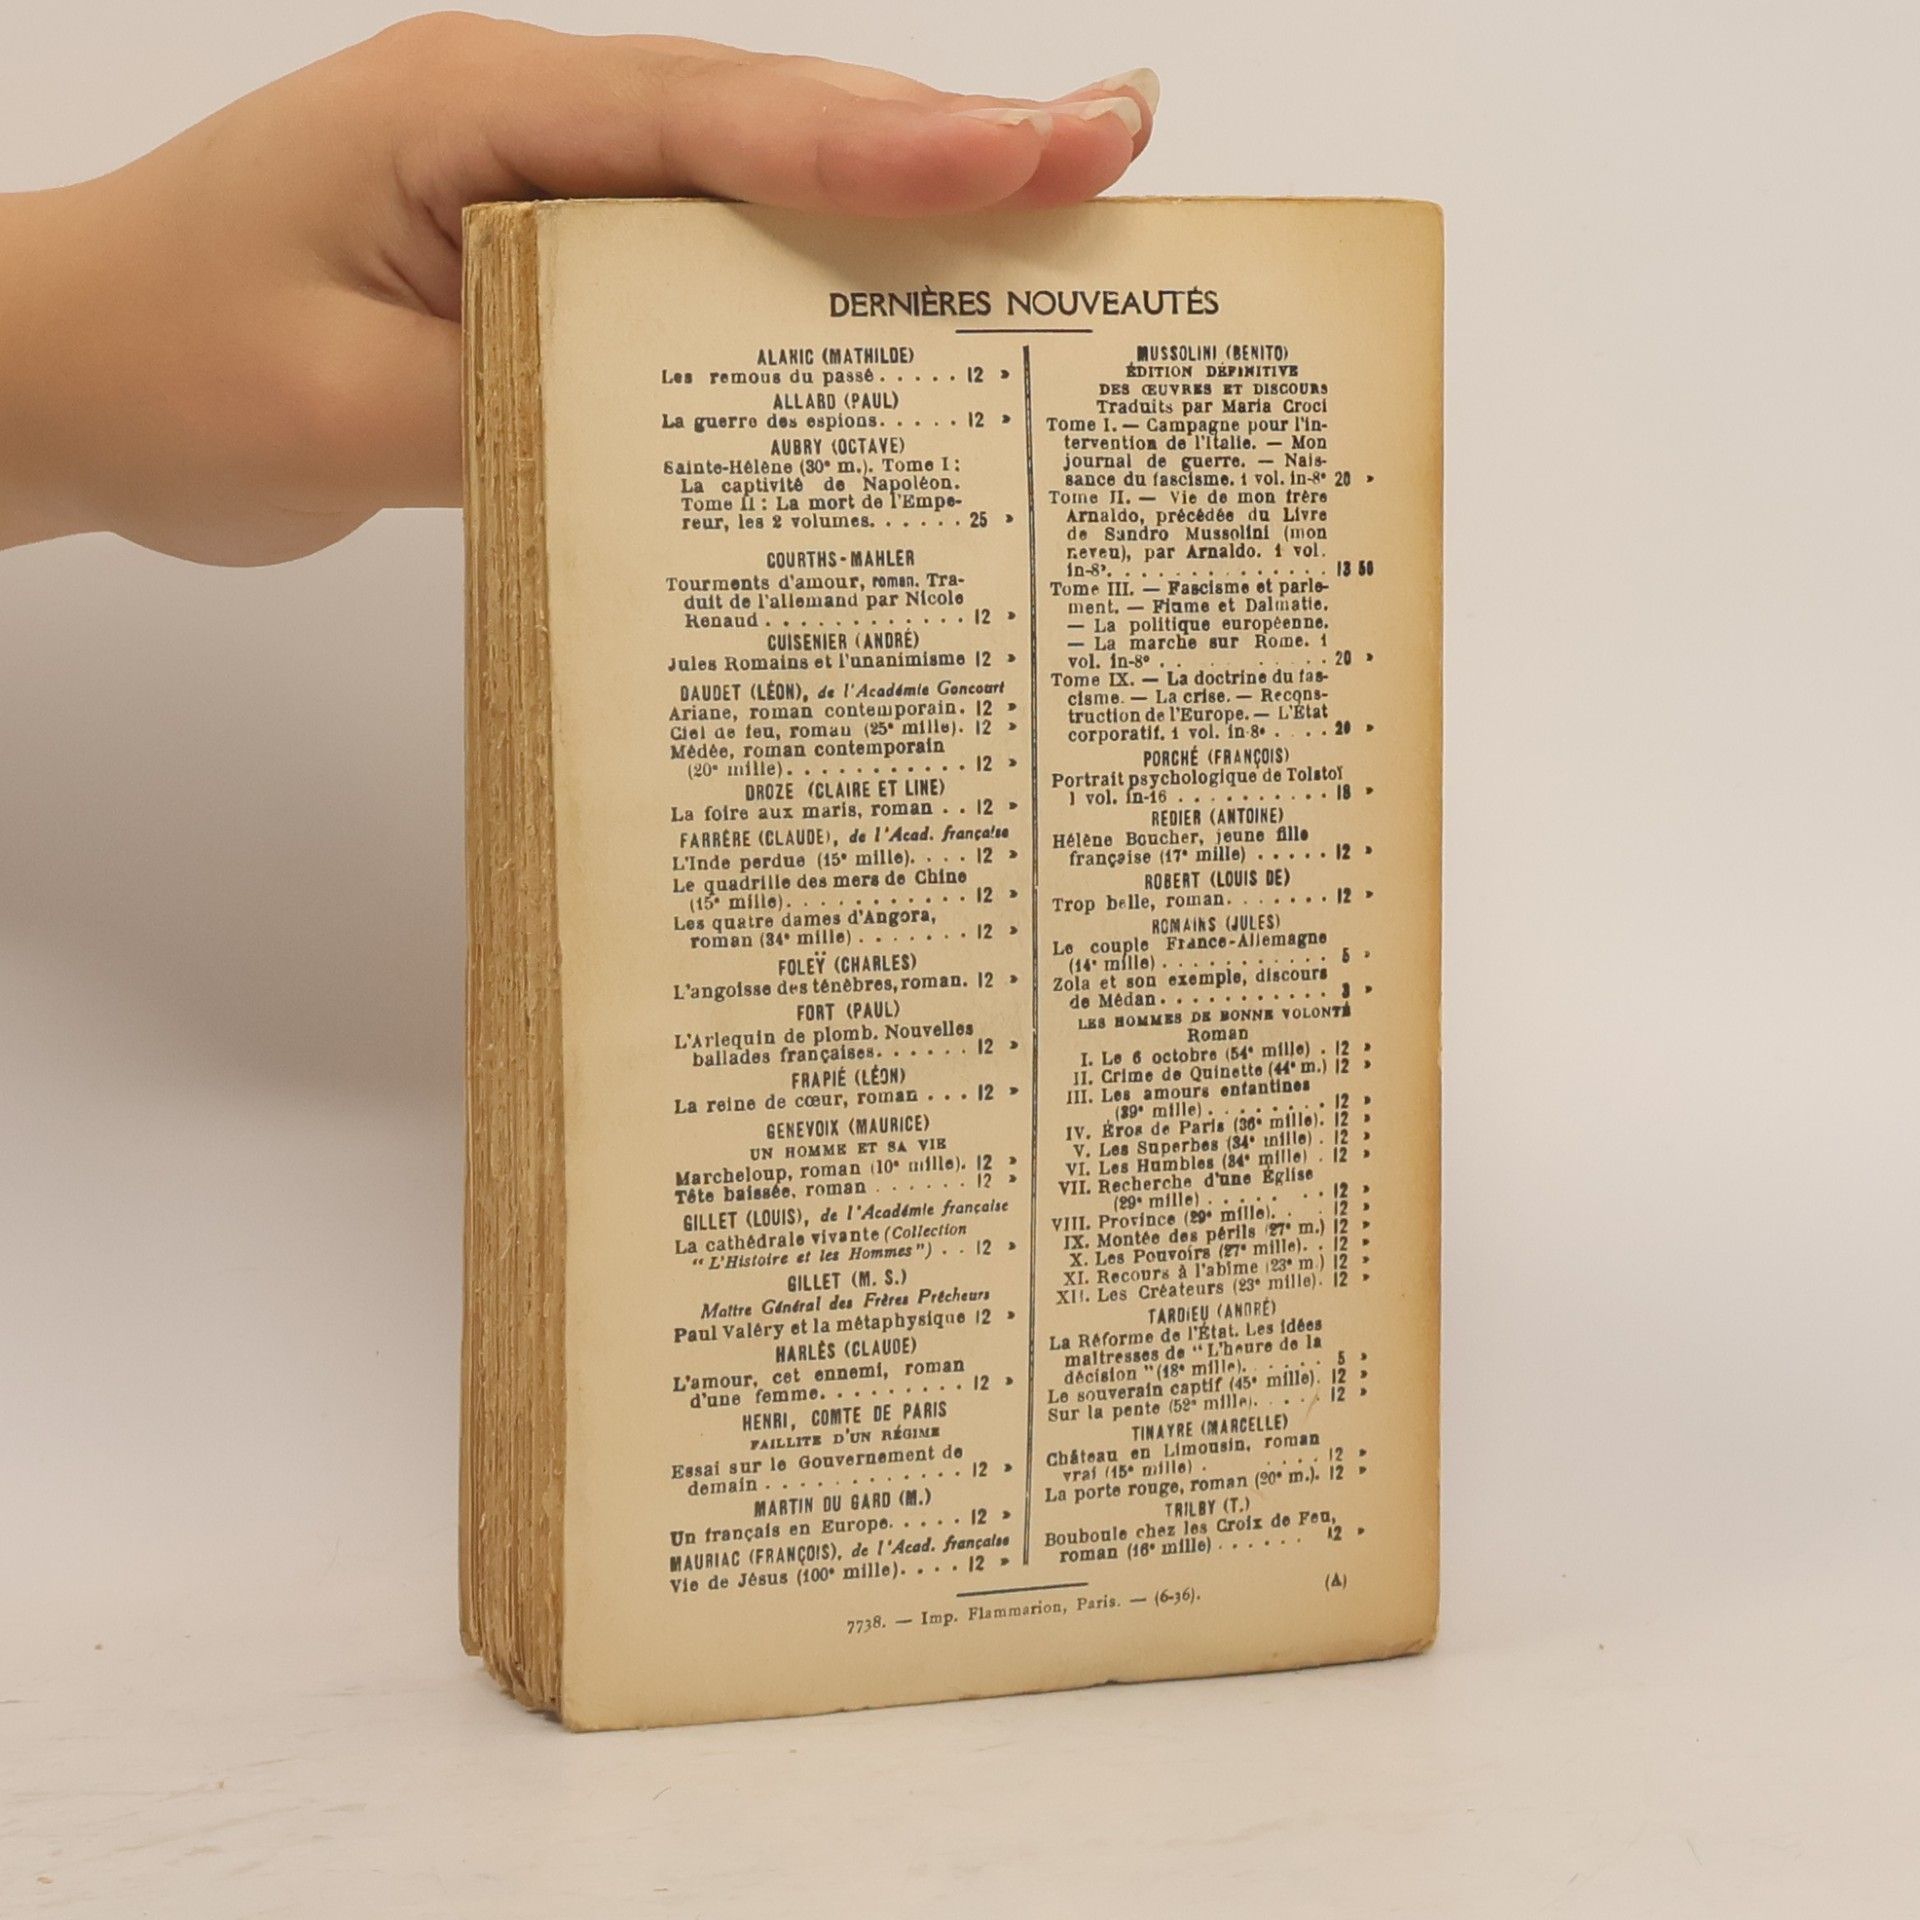 DERNIÈRES NOUVEAUTÉS
ALANIC (MATHILDE)
Les remous du passé . . . . . 12 »
ALLARD (PAUL)
La guerre des espions. . . . . 12 »
AUBRY (OCTAVE)
Sainte-Hélène (30e m.). Tome I :
La captivité de Napoléon.
Tome II : La mort de l'Empe-
reur, les 2 volumes. . . . . . 25 »
COURTHS-MAHLER
Tourments d'amour, roman. Tra-
duit de l'allemand par Nicole
Renaud . . . . . . . . . . . . 12 »
CUISENIER (ANDRÉ)
Jules Romains et l'unanimisme 12 »
DAUDET (LÉON), de l'Académie Goncourt
Ariane, roman contemporain. 12 »
Ciel de feu, roman (25e mille). 12 »
Médée, roman contemporain
(20e mille). . . . . . . . . . . 12 »
DROZE (CLAIRE ET LINE)
La foire aux maris, roman . . 12 »
FARRÈRE (CLAUDE), de l'Acad. française
L'Inde perdue (15e mille). . . . 12 »
Le quadrille des mers de Chine
(15e mille). . . . . . . . . . . 12 »
Les quatre dames d'Angora,
roman (34e mille) . . . . . . . 12 »
FOLEŸ (CHARLES)
L'angoisse des ténèbres, roman. 12 »
FORT (PAUL)
L'Arlequin de plomb. Nouvelles
ballades françaises. . . . . . 12 »
FRAPIÉ (LÉON)
La reine de cœur, roman . . . 12 »
GENEVOIX (MAURICE)
UN HOMME ET SA VIE
Marcheloup, roman (10e mille). 12 »
Tête baissée, roman . . . . . . 12 »
GILLET (LOUIS), de l'Académie française
La cathédrale vivante (Collection
" L'Histoire et les Hommes ") . . 12 »
GILLET (M. S.)
Maître Général des Frères Prêcheurs
Paul Valéry et la métaphysique 12 »
HARLÈS (CLAUDE)
L'amour, cet ennemi, roman
d'une femme. . . . . . . . . 12 »
HENRI, COMTE DE PARIS
FAILLITE D'UN RÉGIME
Essai sur le Gouvernement de
demain . . . . . . . . . . . 12 »
MARTIN DU GARD (M.)
Un français en Europe. . . . . 12 »
MAURIAC (FRANÇOIS), de l'Acad. française
Vie de Jésus (100e mille). . . . 12 »
MUSSOLINI (BENITO)
ÉDITION DÉFINITIVE
DES ŒUVRES ET DISCOURS
Traduits par Maria Croci
Tome I. — Campagne pour l'in-
tervention de l'Italie. — Mon
journal de guerre. — Nais-
sance du fascisme. 1 vol. in-8° 20 »
Tome II. — Vie de mon frère
Arnaldo, précédée du Livre
de Sandro Mussolini (mon
neveu), par Arnaldo. 1 vol.
in-8°. . . . . . . . . . . . . . 13 50
Tome III. — Fascisme et parle-
ment. — Fiume et Dalmatie.
— La politique européenne.
— La marche sur Rome. 1
vol. in-8° . . . . . . . . . . 20 »
Tome IX. — La doctrine du fas-
cisme. — La crise. — Recons-
truction de l'Europe. — L'État
corporatif. 1 vol. in-8° . . . . 20 »
PORCHÉ (FRANÇOIS)
Portrait psychologique de Tolstoï
1 vol. in-16 . . . . . . . . . . 18 »
REDIER (ANTOINE)
Hélène Boucher, jeune fille
française (17e mille) . . . . . 12 »
ROBERT (LOUIS DE)
Trop belle, roman. . . . . . . 12 »
ROMAINS (JULES)
Le couple France-Allemagne
(14e mille) . . . . . . . . . . . 5 »
Zola et son exemple, discours
de Médan. . . . . . . . . . . 3 »
LES HOMMES DE BONNE VOLONTÉ
Roman
I. Le 6 octobre (54e mille) . 12 »
II. Crime de Quinette (44e m.) 12 »
III. Les amours enfantines
(39e mille) . . . . . . . . 12 »
IV. Éros de Paris (36e mille). 12 »
V. Les Superbes (34e mille) . 12 »
VI. Les Humbles (34e mille) . 12 »
VII. Recherche d'une Église
(29e mille) . . . . . . . 12 »
VIII. Province (29e mille). . . 12 »
IX. Montée des périls (27e m.) 12 »
X. Les Pouvoirs (27e mille). . 12 »
XI. Recours à l'abîme (23e m.) 12 »
XII. Les Créateurs (23e mille). 12 »
TARDIEU (ANDRÉ)
La Réforme de l'État. Les idées
maîtresses de " L'heure de la
décision " (18e mille). . . . . . 5 »
Le souverain captif (45e mille). 12 »
Sur la pente (52e mille). . . . . 12 »
TINAYRE (MARCELLE)
Château en Limousin, roman
vrai (15e mille) . . . . . 12 »
La porte rouge, roman (20e m.). 12 »
TRILBY (T.)
Bouboule chez les Croix de Feu,
roman (16e mille) . . . . . . 12 »
(A)
7738. — Imp. Flammarion, Paris. — (6-36).